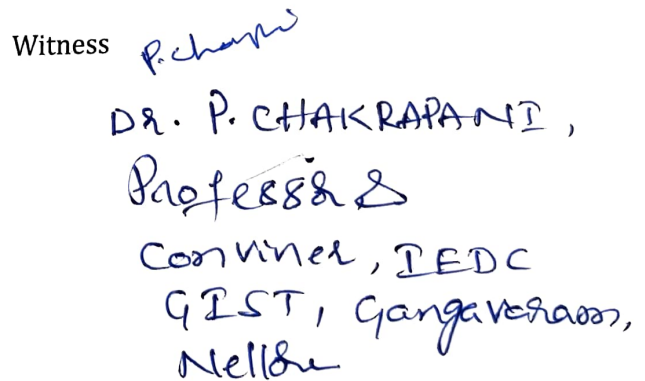 Witness
Dr. P. CHAKRAPANI,
Professor &
Conviner, IEDC
GIST, Gangavaram,
Nellore